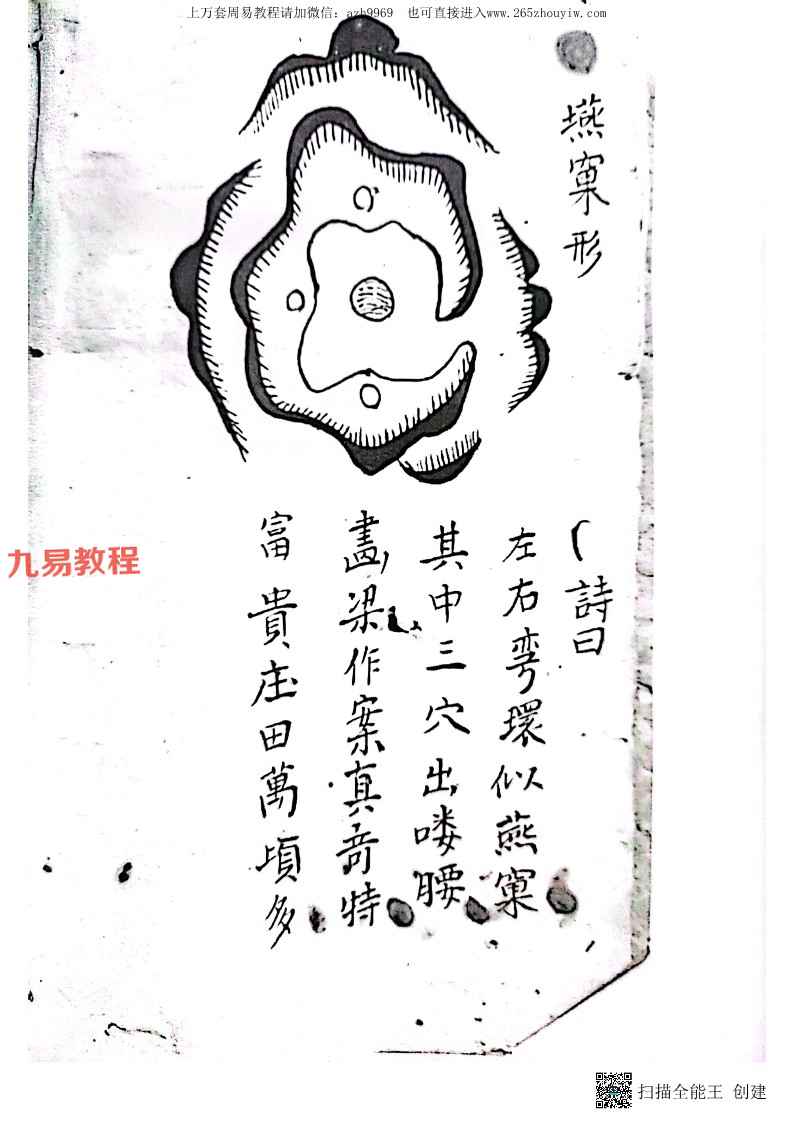 上万套周易教程请加微信：azh9969　也可直接进入www.265zhouyiw.com
燕窠形
詩曰
左右弯環似燕窠
其中三穴出喽腰
畵梁作案真奇特
富貴庄田萬頃多
九易教程
扫描全能王 创建